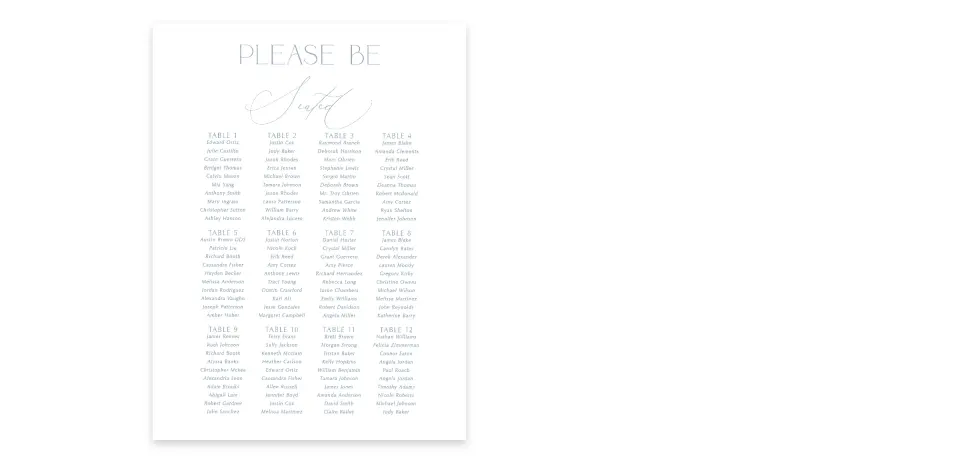 PLEASE BE
Seated
TABLE 1
Edward Ortiz
Julie Castillo
Grant Guerrero
Bridget Thomas
Caleb Mason
Mia Yang
Anthony Smith
Mary Ingram
Christopher Sutton
Ashley Hanson
TABLE 2
Justin Cox
Jody Baker
Jacob Rhodes
Erica Jensen
Michael Brown
Tamara Johnson
Jason Rhodes
Laura Patterson
William Barry
Alejandra
TABLE 3
Raymond
Deborah Harrison
Marc Obrien
Stephanie Lewis
Megan Martin
Deborah Brown
Mr. Troy Obrien
Samantha Garcia
Andrew White
Kristen Webb
TABLE 4
James Blake
Amanda Clements
Erik Reed
Crystal Miller
Sean Scott
Deanna Thomas
Robert Mcdonald
Amy Cortez
Ryan Shelton
Jennifer Johnson
TABLE 5
Austin Brown DDS
Patricia Liu
Richard Booth
Cassandra Fisher
Hayden Becker
Melissa Anderson
Jordan Rodriguez
Alexandra Vaughn
Joseph Patterson
Amber Huber
TABLE 6
Justin Norton
Natalie Rush
Erik Reed
Amy Cortez
Anthony Lewis
Staci Young
Dustin Crawford
Karl Ali
Jesse Gonzales
Margaret Campbell
TABLE 7
Daniel Harlan
Crystal Miller
Grant Guerrero
Amy Pierce
Richard Hernandez
Rebecca Long
Jason Chambers
Emily Williams
Robert Davidson
Angela Miller
TABLE 8
James Blake
Carolyn Bates
Derek Alexander
Lauren Moody
Gregory Kirby
Christine Owens
Michael Wilson
Melissa Martinez
John Reynolds
Katherine Berry
TABLE 9
James Reeves
Noah Johnson
Richard Booth
Alyssa Banks
Christopher Mcgee
Alexandria Leon
Adam Brandt
Abigail Lam
Robert Gardner
John Sanchez
TABLE 10
Terry Evans
Sally Jackson
Kenneth Mcclain
Heather Carlson
Edward Ortiz
Cassandra Fisher
Allen Russell
Jennifer Boyd
Justin Cox
Melissa Martinez
TABLE 11
Brett Brown
Morgan Strong
Darren Baker
Kelly Hopkins
William Benjamin
Tamara Johnson
James Jones
Amanda Anderson
David Smith
Claire Bailey
TABLE 12
Nathan Williams
Felicia Zimmerman
Connor Eaton
Angela Jordan
Paul Roach
Angela Jordan
Timothy Adams
Nicole Roberts
Michael Johnson
Jody Baker